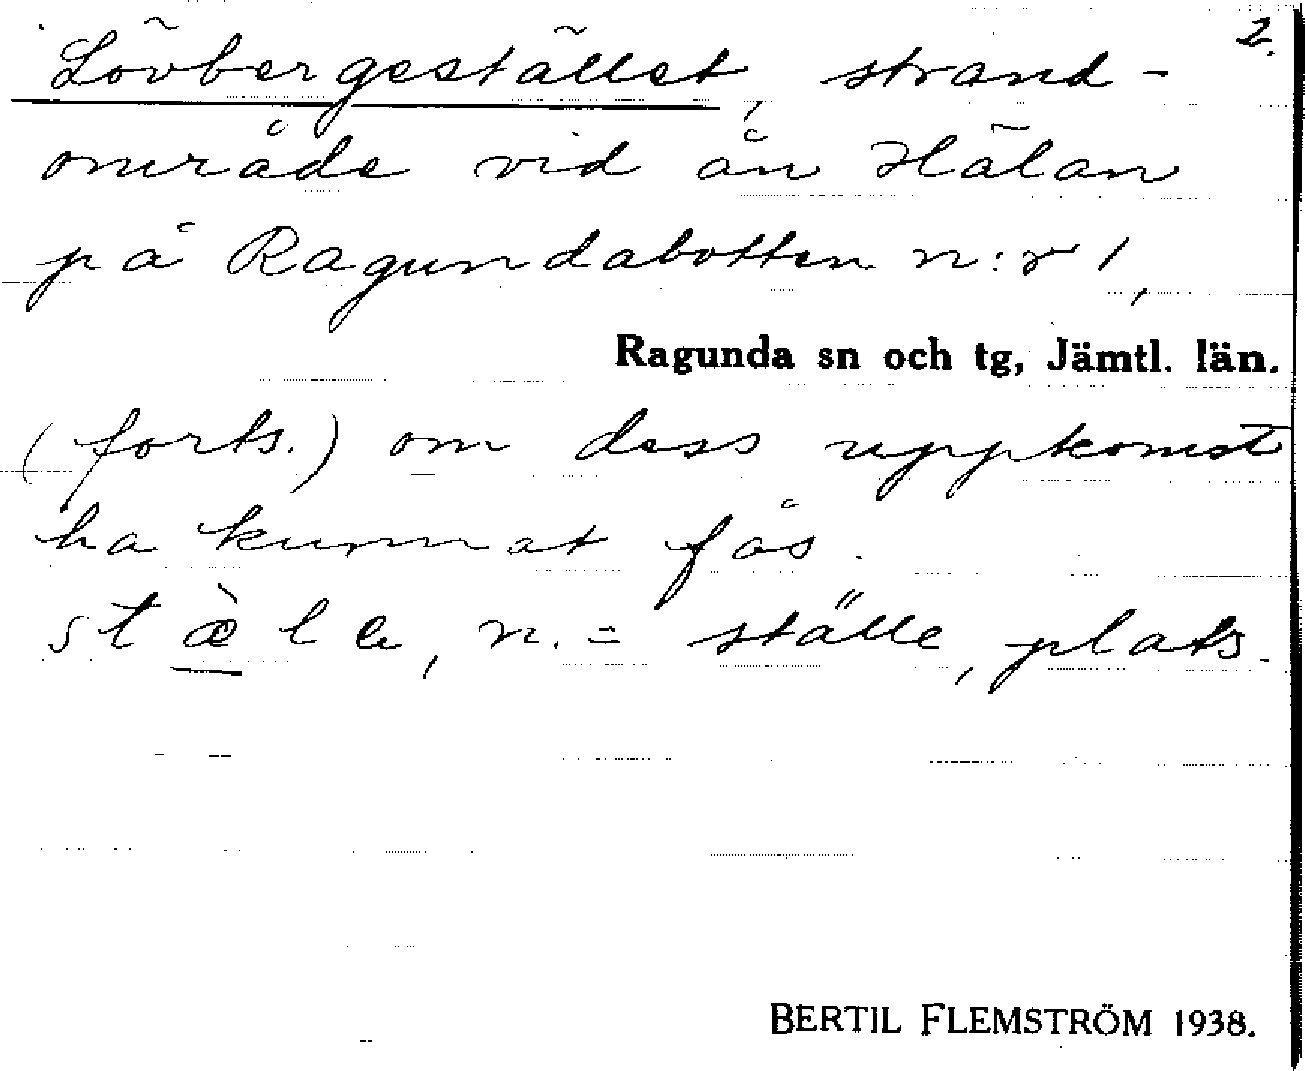 2.
Lövbergestället, strand-
område vid ån Hälan
på Ragundabotten n:r 1,
Ragunda sn och tg, Jämtl. län.
(forts.) om dess uppkomst
ha kunnat fås.
stæ̀le, n. = ställe, plats.
BERTIL FLEMSTRÖM 1938.